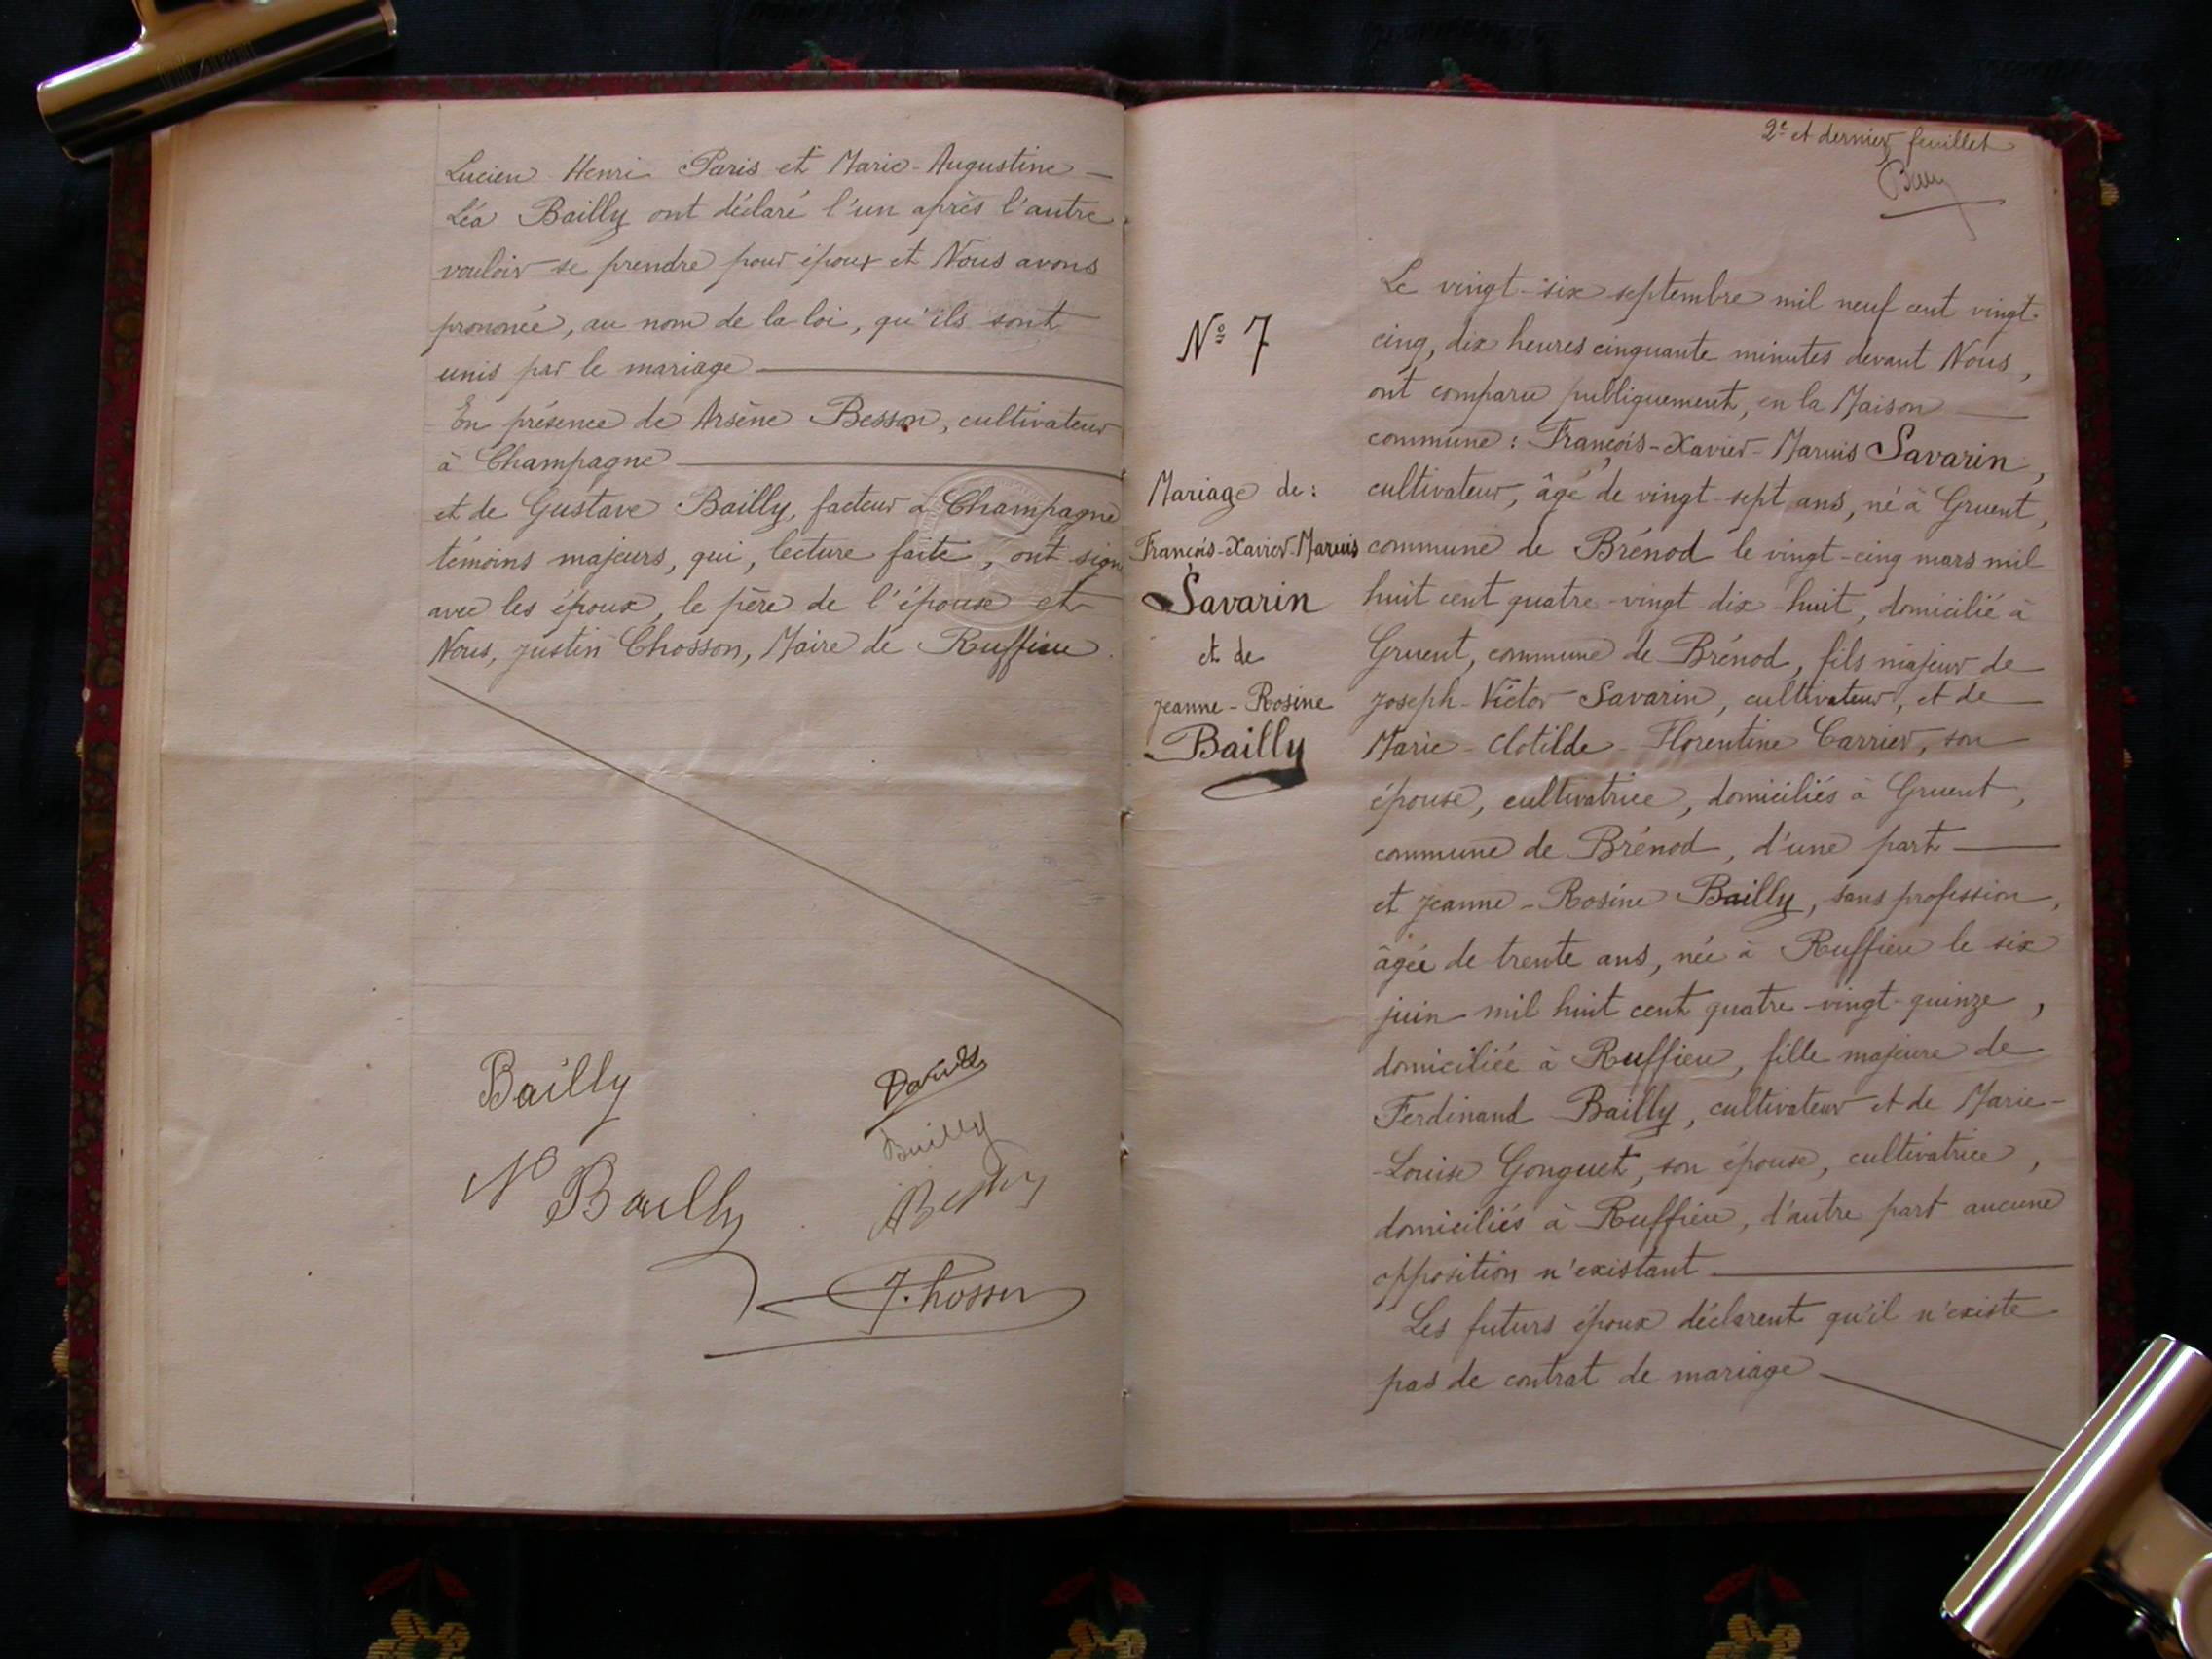 Lucien Henri Paris et Marie-Augustine
Léa Bailly ont déclaré l'un après l'autre
vouloir se prendre pour époux et Nous avons
prononcé, au nom de la loi, qu'ils sont
unis par le mariage
En présence de Arsène Besson, cultivateur
à Champagne
et de Gustave Bailly, facteur à Champagne
témoins majeurs, qui, lecture faite, ont signé
avec les époux, le père de l'épouse et
Nous, Justin Chosson, Maire de Ruffieu.
Bailly
Bailly
N Bailly
J. Chosson
2e et dernier feuillet
N° 7
Mariage de :
François-Xavier-Marius
Savarin
et de
Jeanne-Rosine
Bailly
Le vingt-six septembre mil neuf cent vingt-
cinq, dix heures cinquante minutes devant Nous,
ont comparu publiquement, en la Maison
commune : François-Xavier-Marius Savarin,
cultivateur, âgé de vingt-sept ans, né à Gruent,
commune de Brénod le vingt-cinq mars mil
huit cent quatre-vingt-dix-huit, domicilié à
Gruent, commune de Brénod, fils majeur de
Joseph-Victor Savarin, cultivateur, et de
Marie-Clotilde-Florentine Carrier, son
épouse, cultivatrice, domiciliés à Gruent,
commune de Brénod, d'une part
et Jeanne-Rosine Bailly, sans profession,
âgée de trente ans, née à Ruffieu le six
juin mil huit cent quatre-vingt-quinze,
domiciliée à Ruffieu, fille majeure de
Ferdinand Bailly, cultivateur et de Marie-
-Louise Gonguet, son épouse, cultivatrice,
domiciliés à Ruffieu, d'autre part aucune
opposition n'existant
Les futurs époux déclarent qu'il n'existe
pas de contrat de mariage